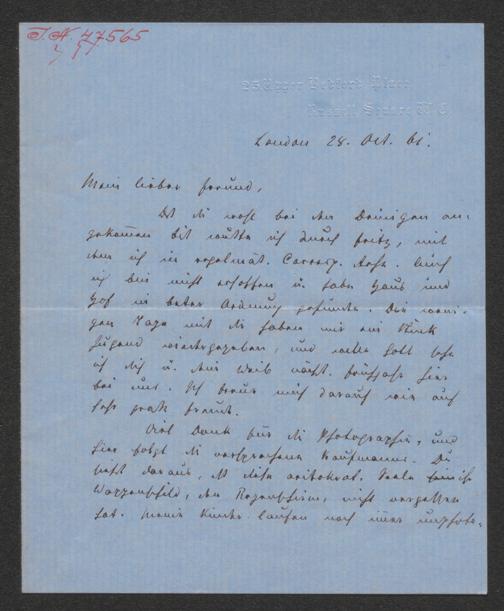 I.N. 47565
25 Upper Bedford Place,
Russell Square W.C.
London 28. Oct. 61.
Mein lieber Freund,
Daß Du wohl bei den Deinigen an-
gekommen bist wußte ich durch Fritz, mit
dem ich in regelmäß. Corresp. stehe. Auch
ich bin nicht ersoffen u. habe Haus und
Hof in bester Ordnung gefunden. Die weni-
gen Tage mit Dir haben mir ein Stück
Jugend wiedergegeben, und will's Gott sehe
ich Dich u. Dein Weib nächst. Frühjahr hier
bei uns. Ich freue mich darauf wie auf
sehr
Viel Dank für die Photographie, und
hier folgt die versprochene Kaufmanns. Du
siehst daraus, daß diese aristokrat. Seele
Wappenschild, den Regenschirm, nicht vergessen
hat. Meine Kinder laufen noch immer unphoto-